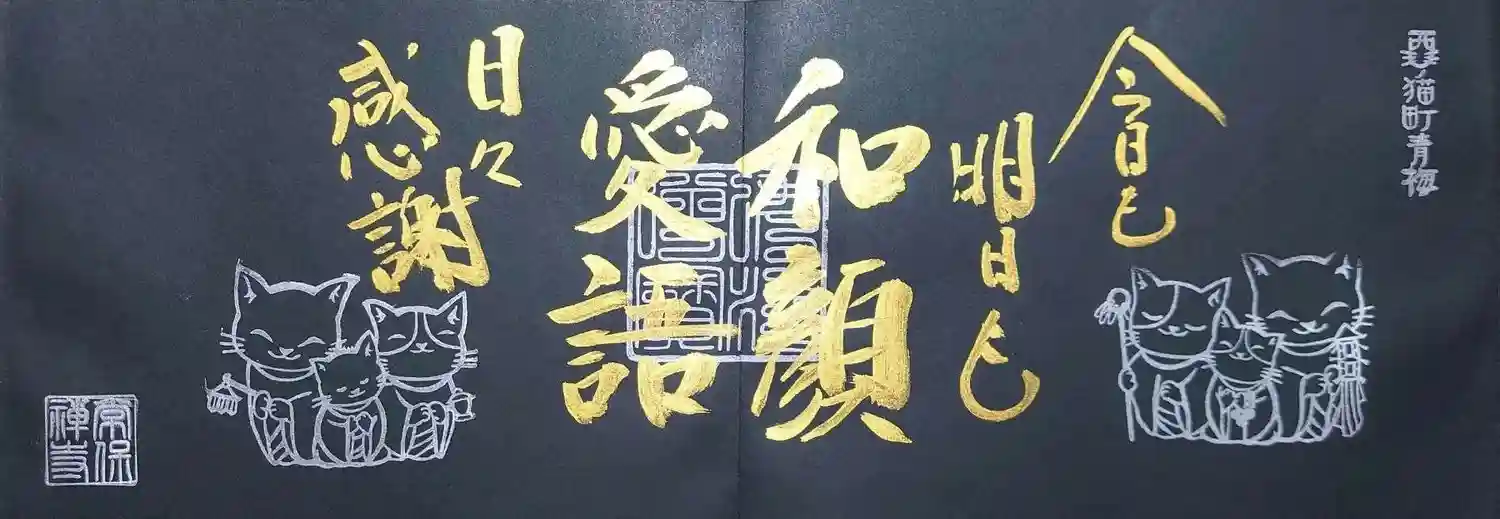 西ノ猫町青梅
今日も
明日も
和顔
愛語
日々
感謝
常保
禅寺